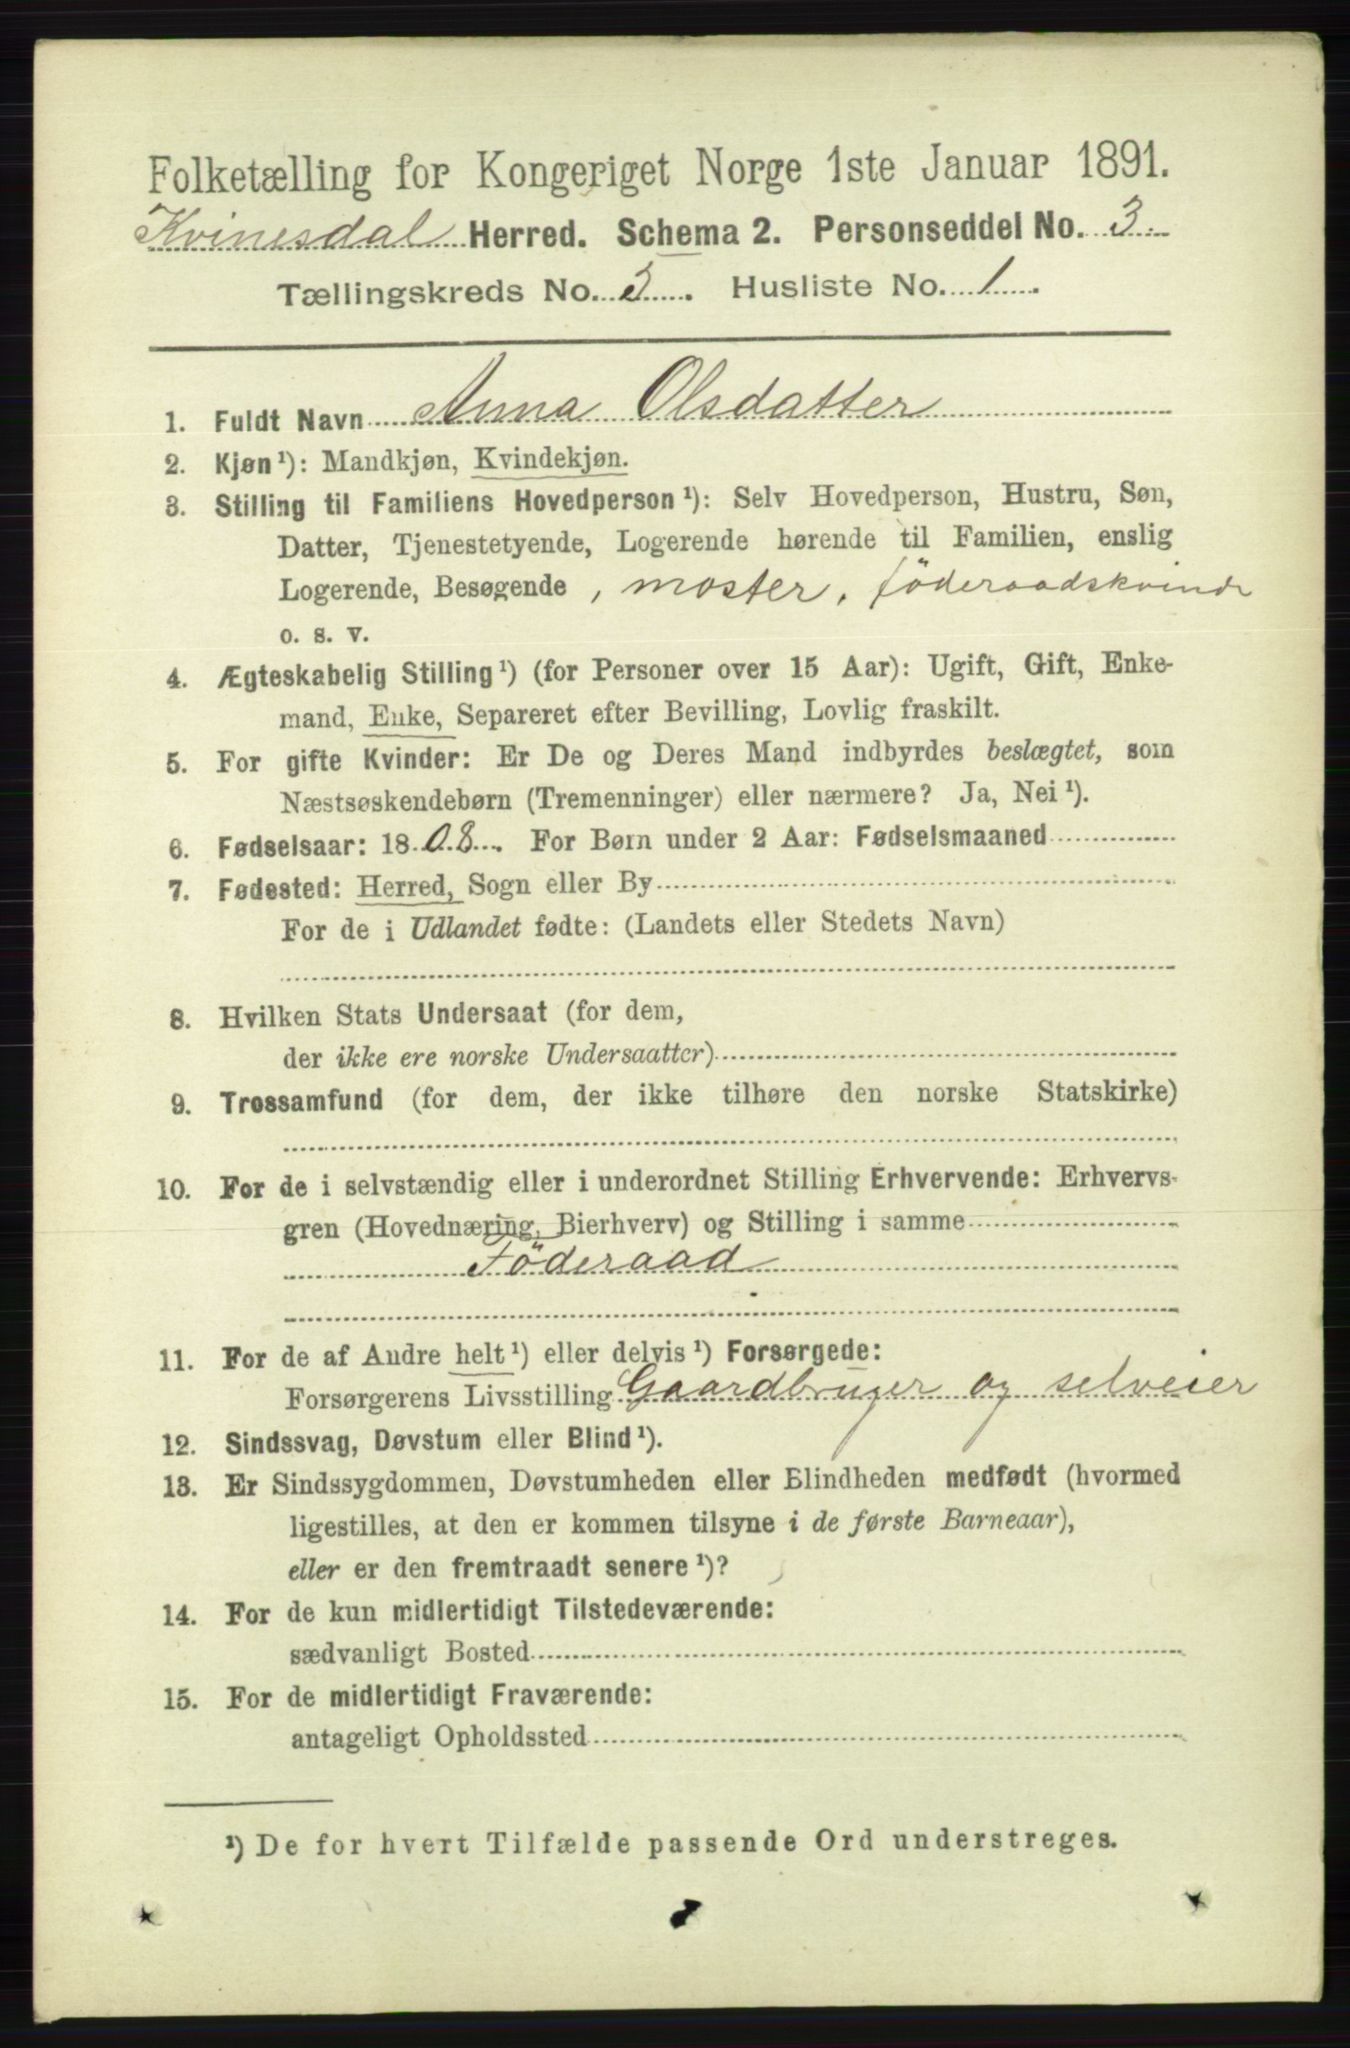 Folketælling for Kongeriget Norge 1ste Januar 1891.
Kvinesdal Herred. Schema 2. Personseddel No. 3.
Tællingskreds No. 3. Husliste No. 1.
1. Fuldt Navn Anna Olsdatter
2. Kjøn¹): Mandkjøn, Kvindekjøn.
3. Stilling til Familiens Hovedperson¹): Selv Hovedperson, Hustru, Søn,
Datter, Tjenestetyende, Logerende hørende til Familien, enslig
Logerende, Besøgende, moster, föderaadskvinde
o. s. v.
4. Ægteskabelig Stilling¹) (for Personer over 15 Aar): Ugift, Gift, Enke-
mand, Enke, Separeret efter Bevilling, Lovlig fraskilt.
5. For gifte Kvinder: Er De og Deres Mand indbyrdes beslægtet, som
Næstsøskendebørn (Tremenninger) eller nærmere? Ja, Nei¹).
6. Fødselsaar: 1808. For Børn under 2 Aar: Fødselsmaaned
7. Fødested: Herred, Sogn eller By
For de i Udlandet fødte: (Landets eller Stedets Navn)
8. Hvilken Stats Undersaat (for dem,
der ikke ere norske Undersaatter)
9. Trossamfund (for dem, der ikke tilhøre den norske Statskirke)
10. For de i selvstændig eller i underordnet Stilling Erhvervende: Erhvervs-
gren (Hovednæring, Bierhverv) og Stilling i samme
Föderaad
11. For de af Andre helt¹) eller delvis¹) Forsørgede:
Forsørgerens Livsstilling Gaardbruger og selveier
12. Sindssvag, Døvstum eller Blind¹).
13. Er Sindssygdommen, Døvstumheden eller Blindheden medfødt (hvormed
ligestilles, at den er kommen tilsyne i de første Barneaar),
eller er den fremtraadt senere¹)?
14. For de kun midlertidigt Tilstedeværende:
sædvanligt Bosted
15. For de midlertidigt Fraværende:
antageligt Opholdssted
¹) De for hvert Tilfælde passende Ord understreges.